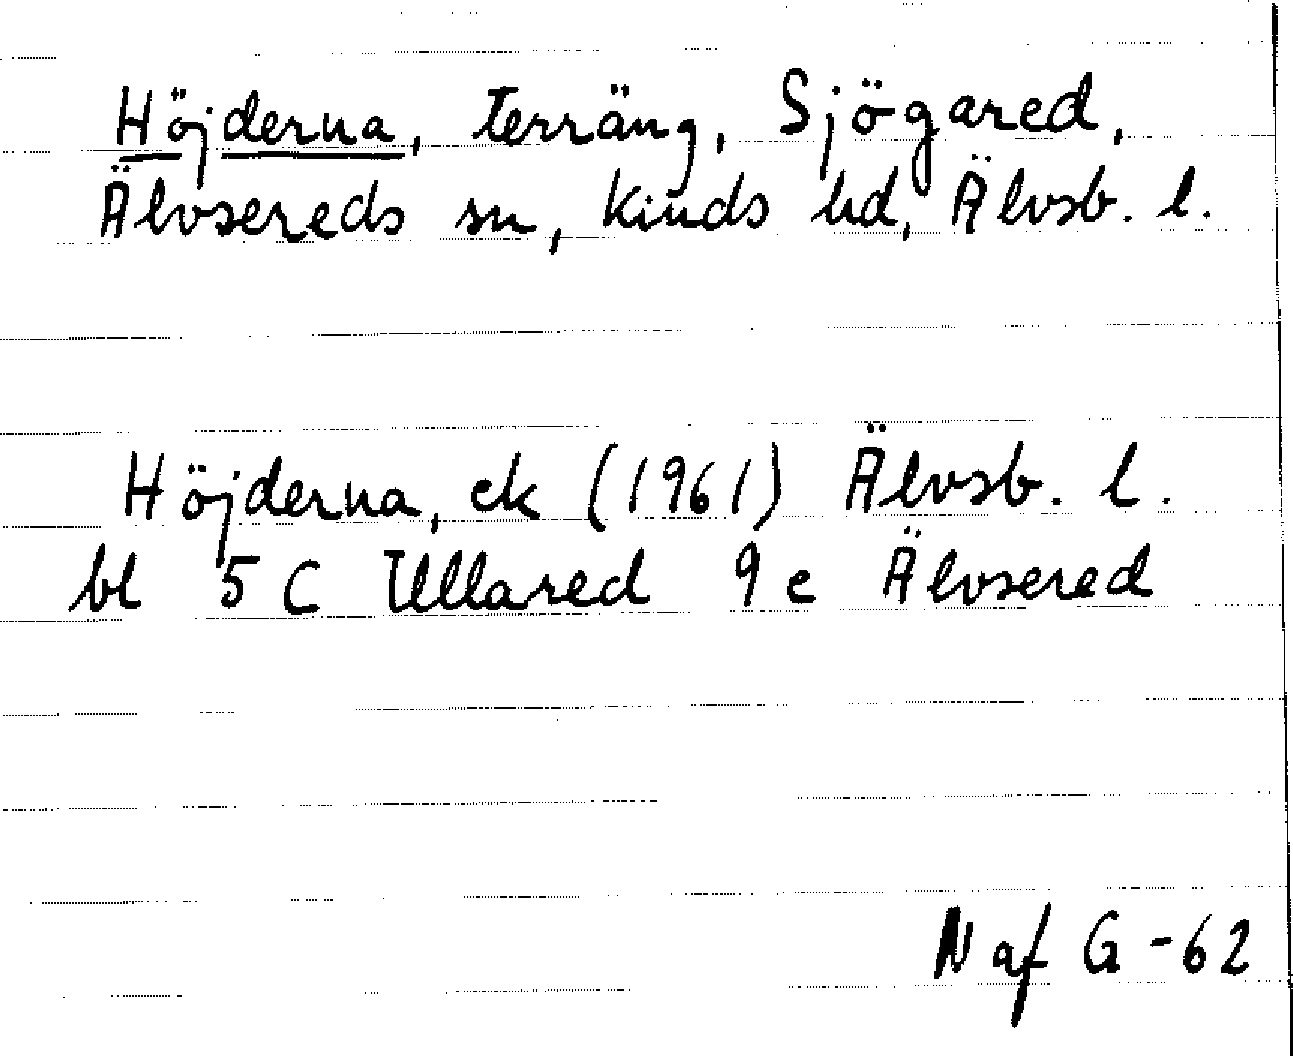 Höjderna, terräng, Sjögared,
Älvsereds sn, Kinds hd, Älvsb. l.
Höjderna, ek (1961) Älvsb. l.
bl 5 C Ullared 9 e Älvsered
N af G -62